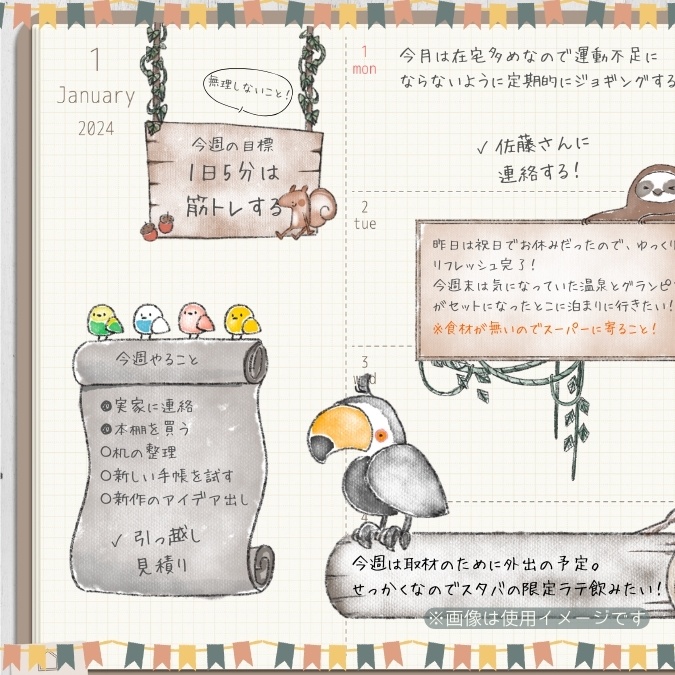 1
January
2024
無理しないこと!
今週の目標
1日5分は
筋トレする
今週やること
実家に連絡
本棚を買う
机の整理
新しい手帳を試す
新作のアイデア出し
✓ 引っ越し
見積り
1
mon
今月は在宅多めなので運動不足に
ならないように定期的にジョギングする
✓ 佐藤さんに
連絡する!
2
tue
昨日は祝日でお休みだったので、ゆっくり
リフレッシュ完了!
今週末は気になっていた温泉とグランピ
がセットになったとこに泊まりに行きたい!
※食材が無いのでスーパーに寄ること!
3
4
今週は取材のために外出の予定。
せっかくなのでスタバの限定ラテ飲みたい!
※画像は使用イメージです